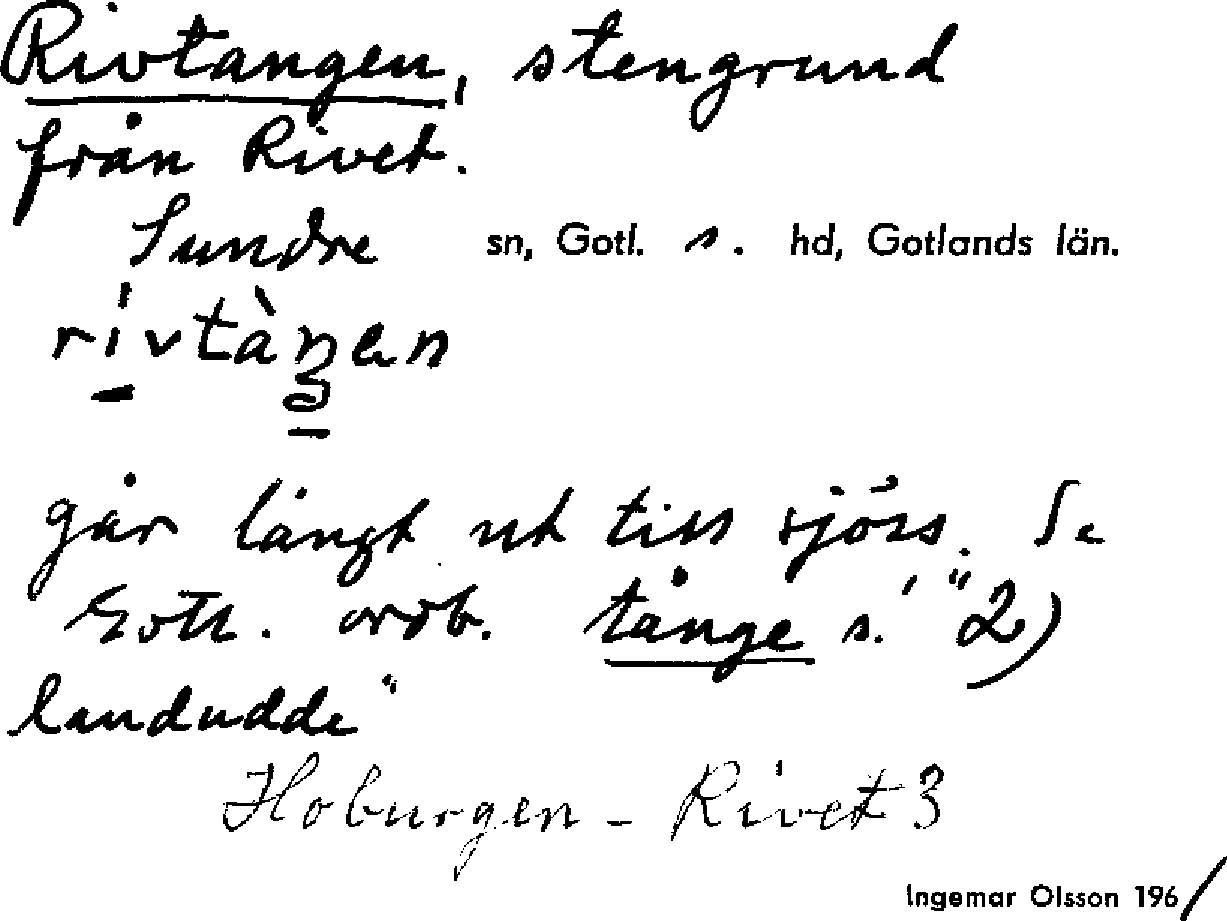 Rivtangen, stengrund
från Rivet.
Sundre sn, Gotl. s. hd, Gotlands län.
rívtàŋen
går långt ut till sjöss. Se
Gotl. ordb. tånge s.' "2)
landudde"
Hoburgen - Rivet 3
Ingemar Olsson 196/